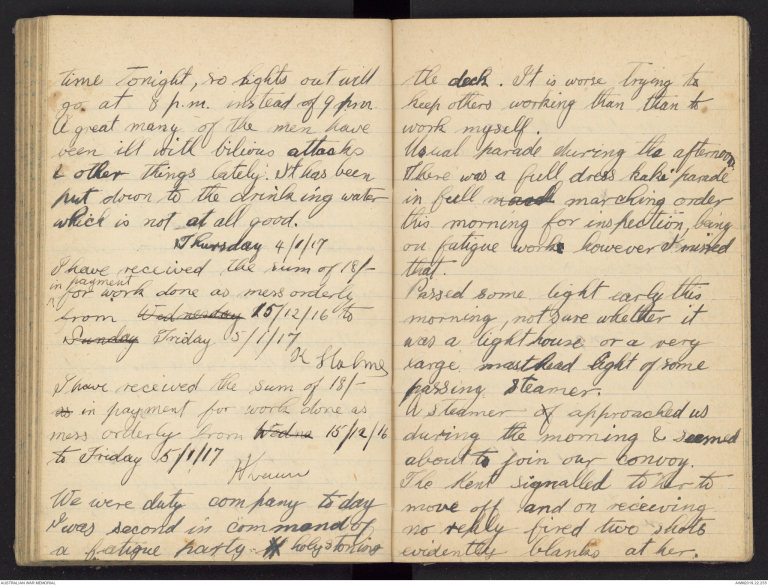 time tonight, so lights out will
go at 8 p.m. instead of 9 p.m.
A great many of the men have
been ill with bilious attacks
& other things lately. It has been
put down to the drinking water
which is not at all good.
Thursday 4/1/17
I have received the sum of 18/-
in payment
for work done as mess orderly
from Wednesday 15/12/16 to
Sunday Friday 5/1/17
K Holmes
I have received the sum of 18/-
as in payment for work done as
mess orderly from Wedne 15/12/16
to Friday 5/1/17
We were duty company to day
I was second in command of
a fatigue party holystoning
the deck. It is worse trying to
keep others working than than to
work myself.
Usual parade during the afternoon
There was a full dress kaki parade
in full marching order
this morning for inspection, being
on fatigue work however I missed
that.
Passed some light early this
morning, not sure whether it
was a lighthouse or a very
large masthead light of some
passing steamer.
A steamer of approached us
during the morning & seemed
about to join our convoy.
The Kent signalled to her to
move off and on receiving
no reply fired two shots
evidently blanks at her.
AUSTRALIAN WAR MEMORIAL